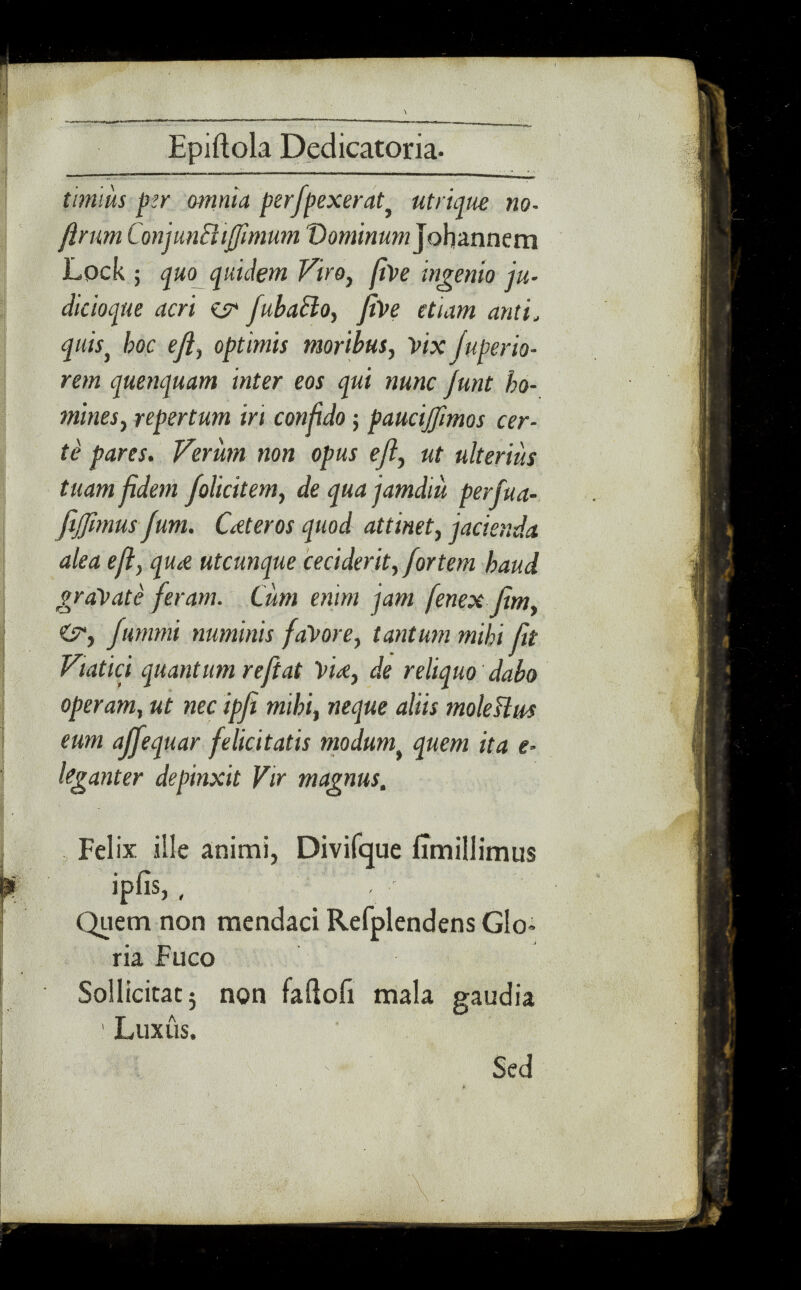 Epiſtola Dedicatoria.
timiùs per omnia perſpexerat, utrique no-
ſtrum Conjunctiſſimum Dominum Johannem
Lock ; quo quidem Viro, ſive ingenio ju-
dicioque acri & ſubacto, ſive etiam anti-
quis, hoc eſt, optimis moribus, vix ſuperio-
rem quenquam inter eos qui nunc ſunt ho-
mines, repertum iri confido ; pauciſſimos cer-
tè pares. Verùm non opus eſt, ut ulteriùs
tuam fidem ſolicitem, de qua jamdiù perſua-
ſiſſimus ſum. Cæteros quod attinet, jacienda
alea eſt, quæ utcunque ceciderit, ſortem haud
gravatè feram. Cùm enim jam ſenex ſim,
&, ſummi numinis favore, tantum mihi ſit
Viatici quantum reſtat viæ, de reliquo dabo
operam, ut nec ipſi mihi, neque aliis moleſtus
eum aſſequar felicitatis modum, quem ita e-
leganter depinxit Vir magnus.
Felix ille animi, Diviſque ſimillimus
ipſis, ,
Quem non mendaci Reſplendens Glo-
ria Fuco
Sollicitat; non faſtoſi mala gaudia
Luxûs.
Sed